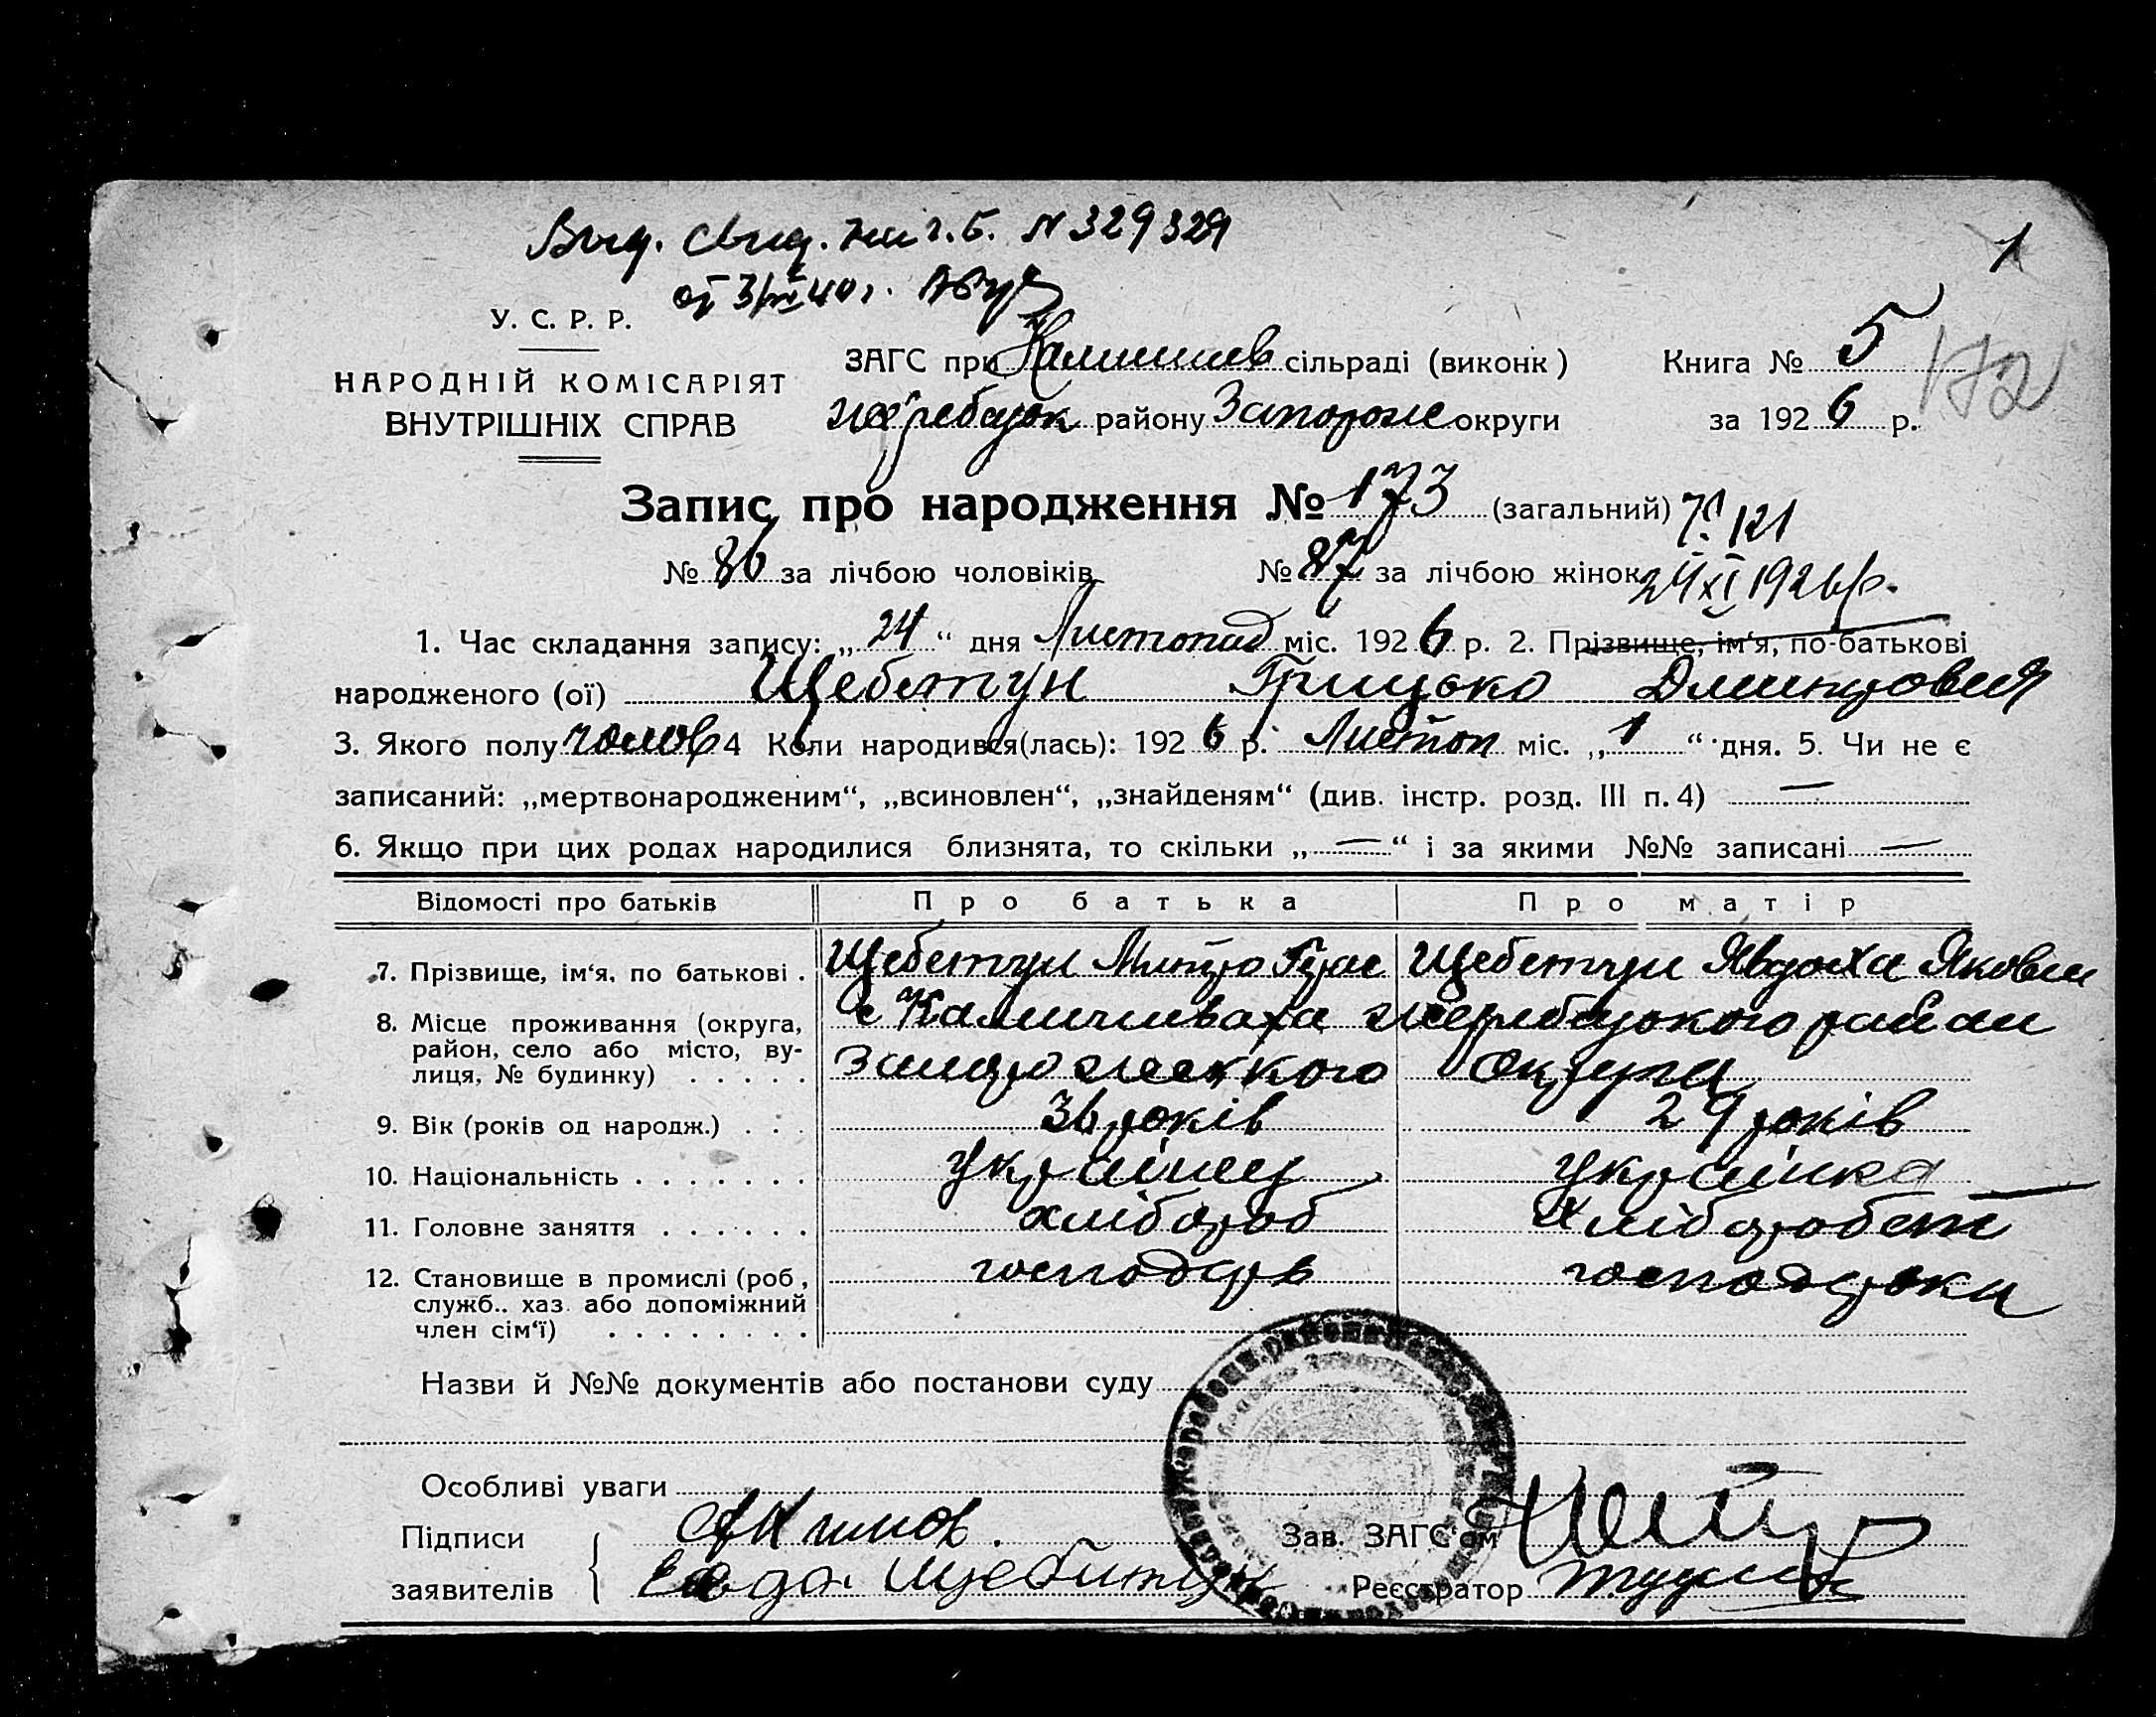 Вид. свид. N 329329
от 3/ 40 г.
1
У. С. Р. Р.
НАРОДНІЙ КОМІСАРІЯТ
ВНУТРІШНІХ СПРАВ
ЗАГС при Камишев сільраді (виконк) Книга № 5 172
жеребецьк району Запорож округи за 1926 р.
Запис про народження № 173 (загальний) 121
№ 86 за лічбою чоловіків № 87 за лічбою жінок 24 XI 1926 р.
1. Час складання запису: „24“ дня Листопад міс. 1926 р. 2. Прізвище, ім‘я, по-батькові
народженого (ої) Щебетун Грицько Дмитрович
3. Якого полу чолов 4 Коли народився(лась): 1926 р. Листоп міс. „1“ дня. 5. Чи не є
записаний: „мертвонародженим“, „всиновлен“, „знайденям“ (див. інстр. розд. III п. 4) —
6. Якщо при цих родах народилися близнята, то скільки „—“ і за якими №№ записані —
Відомості про батьків Про батька Про матір
7. Прізвище, ім‘я, по батькові . Щебетун Митро Щебетун Явдоха Яковл
8. Місце проживання (округа, район, село або місто, вулиця, № будинку) . . . . . с Камишеваха жеребецького район
Запорожского округа
9. Вік (років од народж.) . . . 36 років 29 років
10. Національність . . . . . . . українец українка
11. Головне заняття . . . . . . хлібороб хлібороб
12. Становище в промислі (роб, господарь господарка
служб.. хаз. або допоміжний
член сім‘ї) . . . . . . . .
Назви й №№ документів або постанови суду
Особливі уваги
Підписи Зав. ЗАГС‘ом
заявителів Щебитун Реєстратор